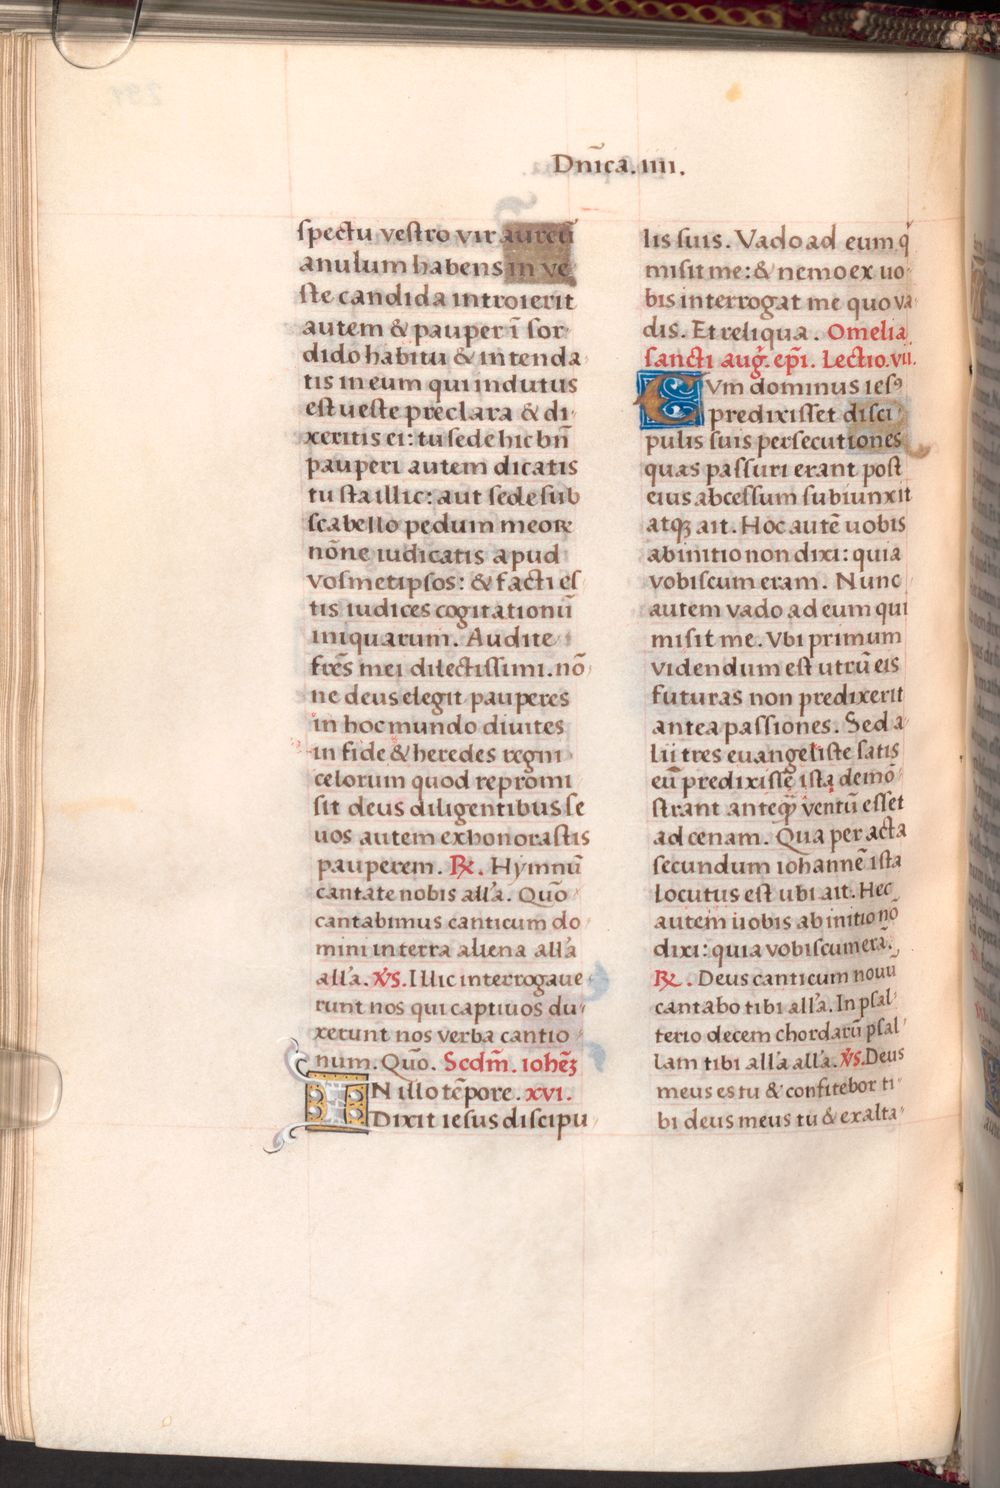 Dn̄ica. iiii.
spectu vestro vir aureū
anulum habens in ve
ste candida introierit
autem & pauper ī sor
dido habitu & intenda
tis in eum qui indutus
est ueste preclara & di
xeritis ei: tu sede hic bn̄
pauperi autem dicatis
tu sta illic: aut sede sub
scabello pedum meorꝝ
nōne iudicatis apud
vosmetipsos: & facti es
tis iudices cogitationū
iniquarum. Audite
frēs mei dilectissimi. nō
ne deus elegit pauperes
in hoc mundo diuites
in fide & heredes regni
celorum quod repromi
sit deus diligentibus se
uos autem exhonorastis
pauperem. ℟. Hymnū
cantate nobis all'a. Quō
cantabimus canticum do
mini in terra aliena all'a
all'a. ℣S. Illic interrogaue
runt nos qui captiuos du
xerunt nos verba cantio
num. Quō. Scdm̄. iohēꝫ
IN illo tēpore. xvi.
Dixit iesus discipu
lis suis. Vado ad eum q̇
misit me: & nemo ex uo
bis interrogat me quo va
dis. Et reliqua. Omelia
sancti aug̛. ep̄i. Lectio. vii.
CVm dominus iesꝰ
predixisset disci
pulis suis persecutiones
quas passuri erant post
eius abcessum subiunxit
atqꝫ ait. Hoc autē uobis
ab initio non dixi: quia
vobiscum eram. Nunc
autem vado ad eum qui
misit me. Vbi primum
videndum est utrū eis
futuras non predixerit
antea passiones. Sed a
lii tres euangeliste satis
eū predixissē ista demō
strant anteq̄ ventū esset
ad cenam. Qua peracta
secundum iohannē ista
locutus est ubi ait. Hec
autem uobis ab initio nō
dixi: quia vobiscum erā.
℟. Deus canticum nouū
cantabo tibi all'a. In psal
terio decem chordarū psal
lam tibi all'a all'a. ℣S. Deus
meus es tu & confitebor ti
bi deus meus tu & exalta